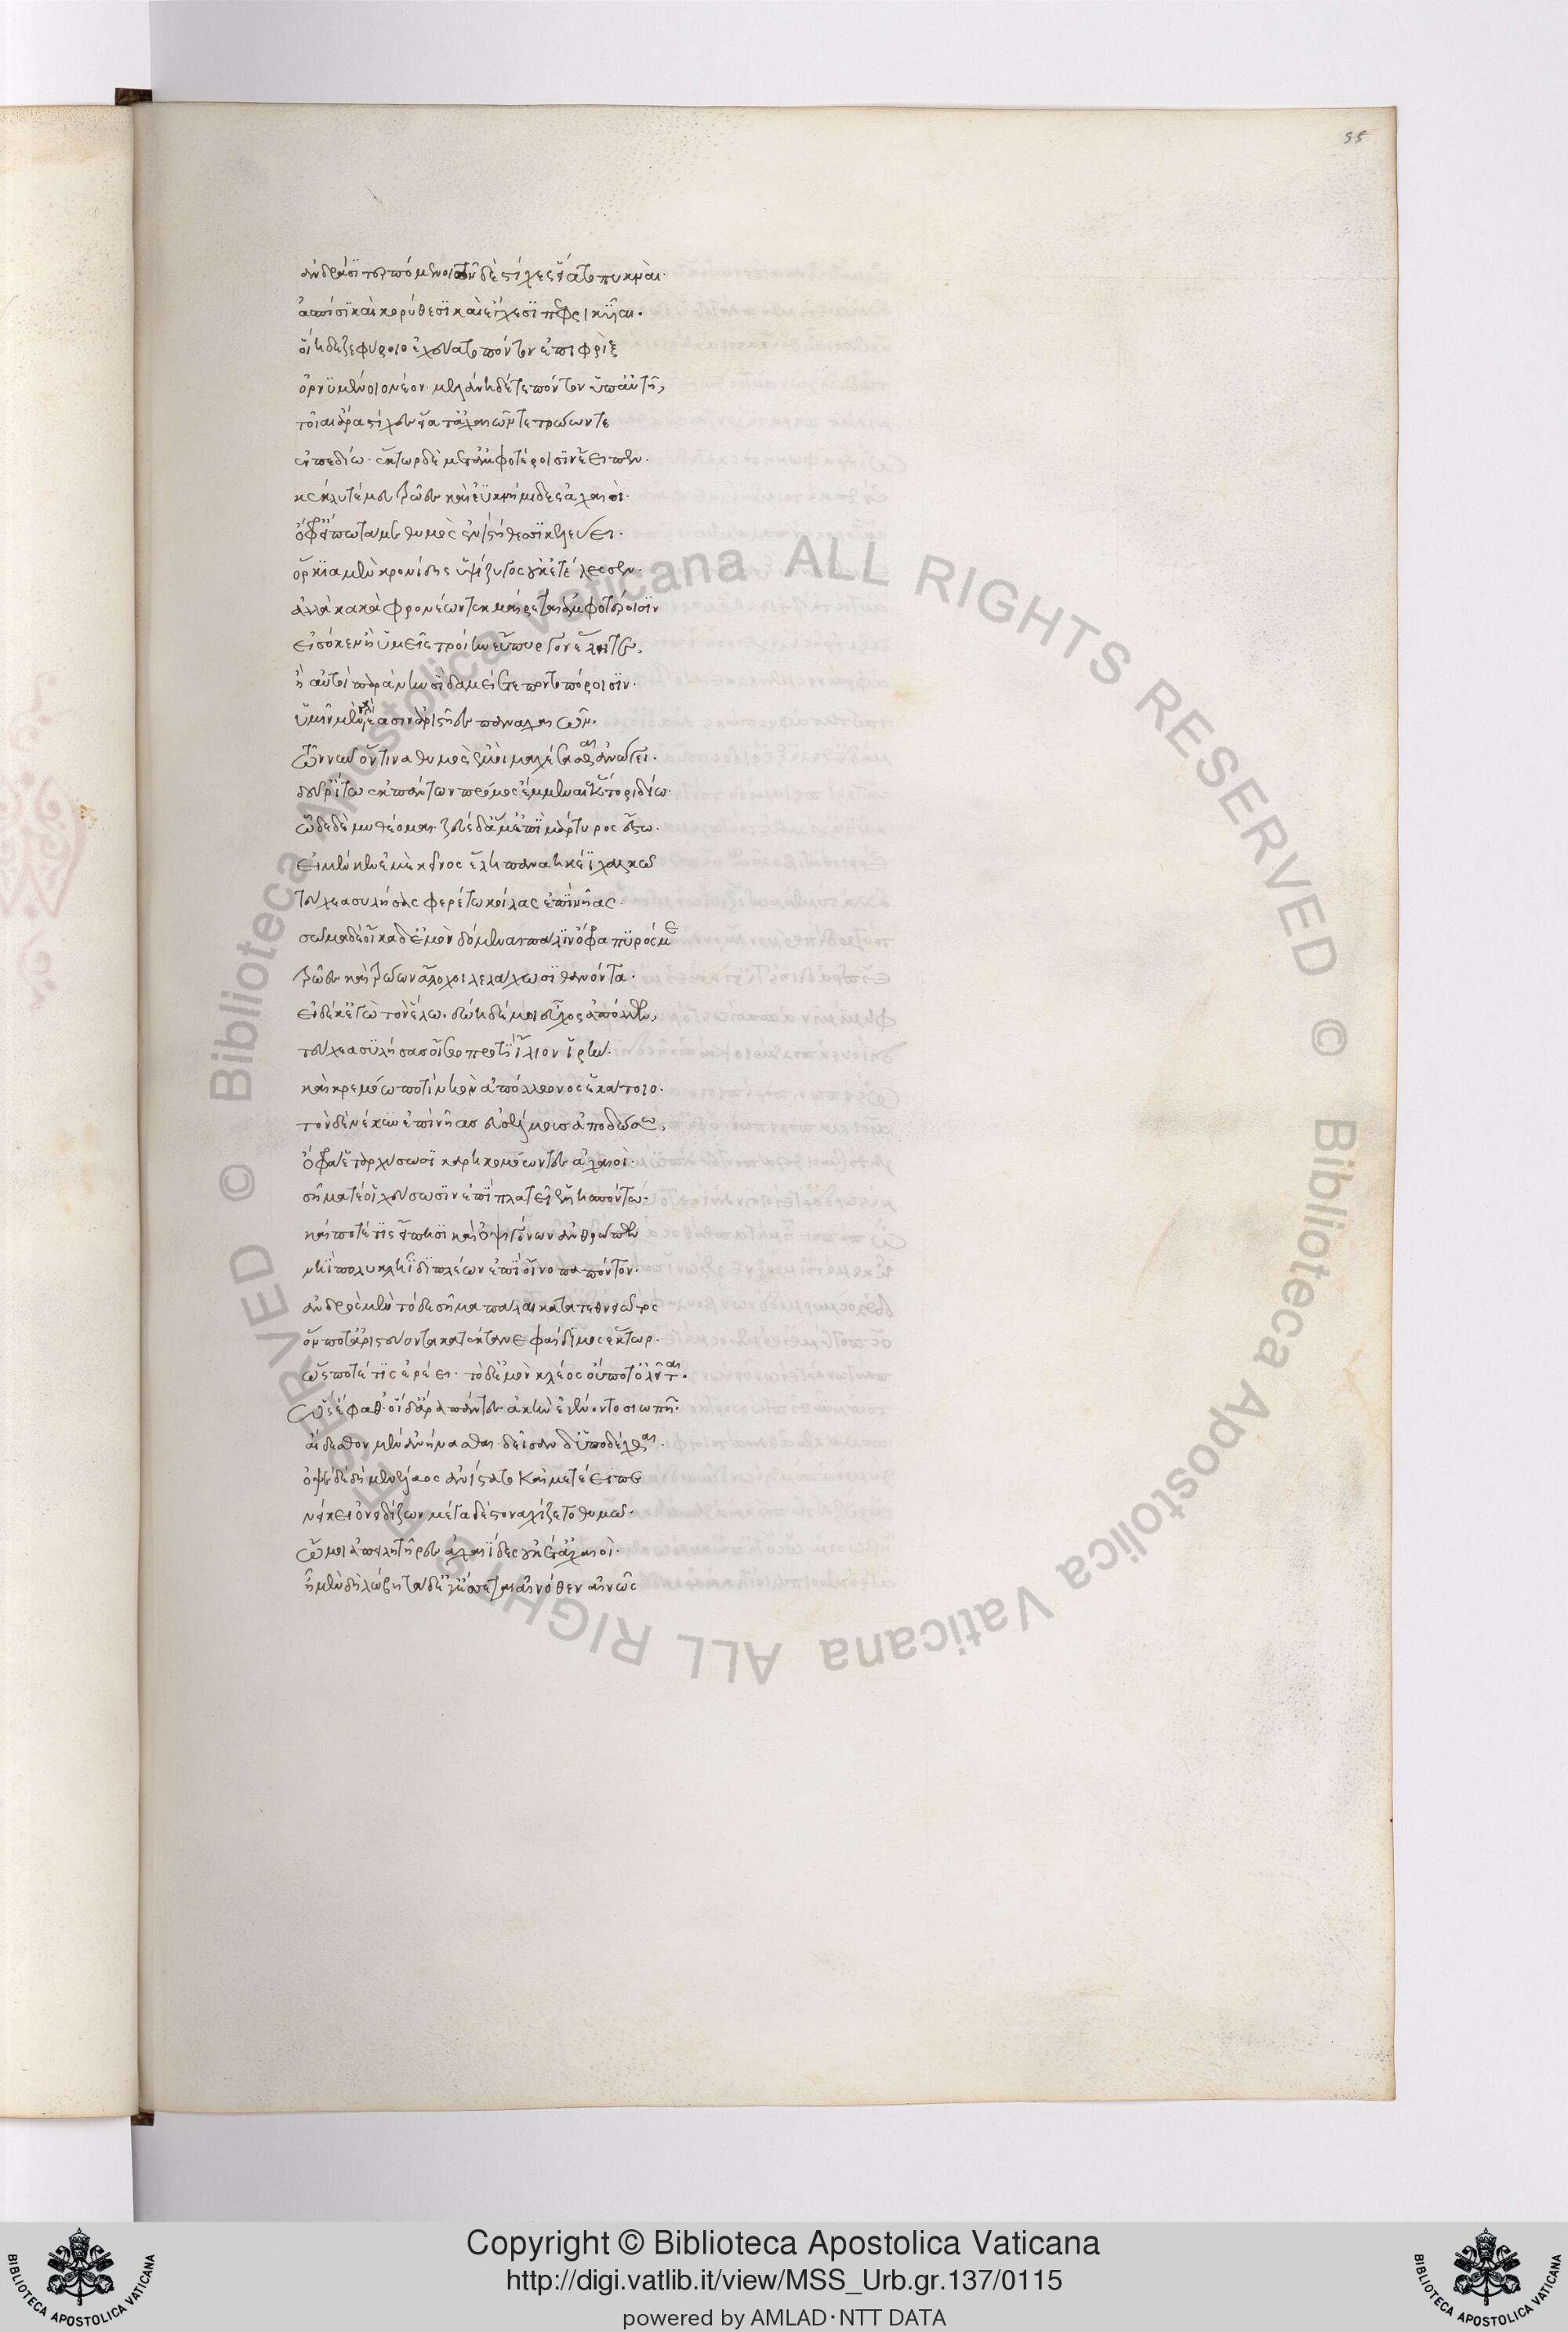 55
ἀνδράσι τερπόμενοι· τῶν δὲ στίχες εἵατο πυκναὶ·
ἀσπίσι καὶ κορύθεσι καὶ ἔγχεσι πεφρικυῖαι·
οἵη δε ζεφύροιο ἐχεύατο πόντον ἔπι φρὶξ
ὀρνυμένοιο νέον· μελάνη δέ τε πόντον ὑπ' αὐτῆ,
τοῖαι ἄρα στίχες εἵατ' ἀχαιῶν τε τρώων τε
ἐν πεδίω· ἕκτωρ δὲ μετ' ἀμφοτέροισιν ἔειπεν·
κέκλυτέ μευ τρῶες καὶ ἐϋκνήμιδες ἀχαιοὶ·
ὄφρ' εἴπω τά με θυμὸς ἐνὶ στήθεσσι κελεύει·
ὅρκια μὲν κρονίδης ὑψίζυγος οὐκ ἐτέλεσσεν·
ἀλλὰ κακὰ φρονέων τεκμαίρεται ἀμφοτέροισιν
εἰσόκεν ἢ ὑμεῖς τροίην εὔπυργον ἕλητε,
ἢ αὐτοὶ παρὰ νηυσὶ δαμείετε ποντοπόροισιν·
ὑμῖν μὲν γὰρ ἔασιν ἀριστῆες παναχαιῶν·
τῶν νῦν ὅντινα θυμὸς ἐμοὶ μαχέσασθαι ἀνώγει·
δεῦρ' ἴτω ἐκ πάντων πρόμος ἔμμεναι ἕκτορι δίω·
ὧδε δὲ μυθέομαι· ζεὺς δ' ἄμμ' ἐπὶ μάρτυρος ἔστω·
εἰ μέν κεν ἐμὲ κεῖνος ἕλη ταναήκεϊ χαλκῶ
τεύχεα συλήσας φερέτω κοίλας ἐπὶ νῆας·
σῶμα δὲ οἴκαδ' ἐμὸν δόμεναι πάλιν ὄφρα πυρός με
τρῶες καὶ τρώων ἄλοχοι λελάχωσι θανόντα·
εἰ δέ κ' ἐγὼ τὸν ἕλω· δώη δέ μοι εὖχος ἀπόλλων,
τεύχεα συλήσας οἴσω προτὶ ἴλιον ἱρήν·
καὶ κρεμόω ποτὶ νηὸν ἀπόλλωνος ἑκάτοιο·
τὸν δὲ νέκυν ἐπὶ νῆας ἐϋσσέλμους ἀποδώσω,
ὄφρα ἑ ταρχύσωσι καρηκομόωντες ἀχαιοὶ·
σῆμα τέ οἱ χεύσωσιν ἐπὶ πλατεῖ ἑλλησπόντω·
καί ποτέ τις εἴπησι καὶ ὀψιγόνων ἀνθρώπων
νηῒ πολυκλήϊδι πλέων ἐπὶ οἴνοπα πόντον·
ἀνδρὸς μὲν τόδε σῆμα πάλαι κατατεθνειῶτος
ὅν ποτ' ἀριστεύοντα κατέκτανε φαίδιμος ἕκτωρ·
ὥς ποτέ τις ἐρέει· τὸ δ' ἐμὸν κλέος οὔποτ' ὀλεῖται·
ὣς ἔφαθ'· οἱ δ' ἄρα πάντες ἀκὴν ἐγένοντο σιωπῆ·
αἴδεσθεν μὲν ἀνήνασθαι· δεῖσαν δ' ὑποδέχθαι·
ὀψὲ δὲ δὴ μενέλαος ἀνίστατο καὶ μετέειπε
νείκει ὀνειδίζων· μέγα δὲ στοναχίζετο θυμῶ·
ὤ μοι ἀπειλητῆρες ἀχαιΐδες οὐκέτ' ἀχαιοὶ·
ἦ μὲν δὴ λώβη τάδε γ' ἔσσεται αἰνόθεν αἰνῶς
Copyright © Biblioteca Apostolica Vaticana
http://digi.vatlib.it/view/MSS_Urb.gr.137/0115
powered by AMLAD·NTT DATA
© Biblioteca Apostolica Vaticana ALL RIGHTS RESERVED © Biblioteca Apostolica Vaticana ALL RIGHTS RESERVED
BIBLIOTECA APOSTOLICA VATICANA
BIBLIOTECA APOSTOLICA VATICANA